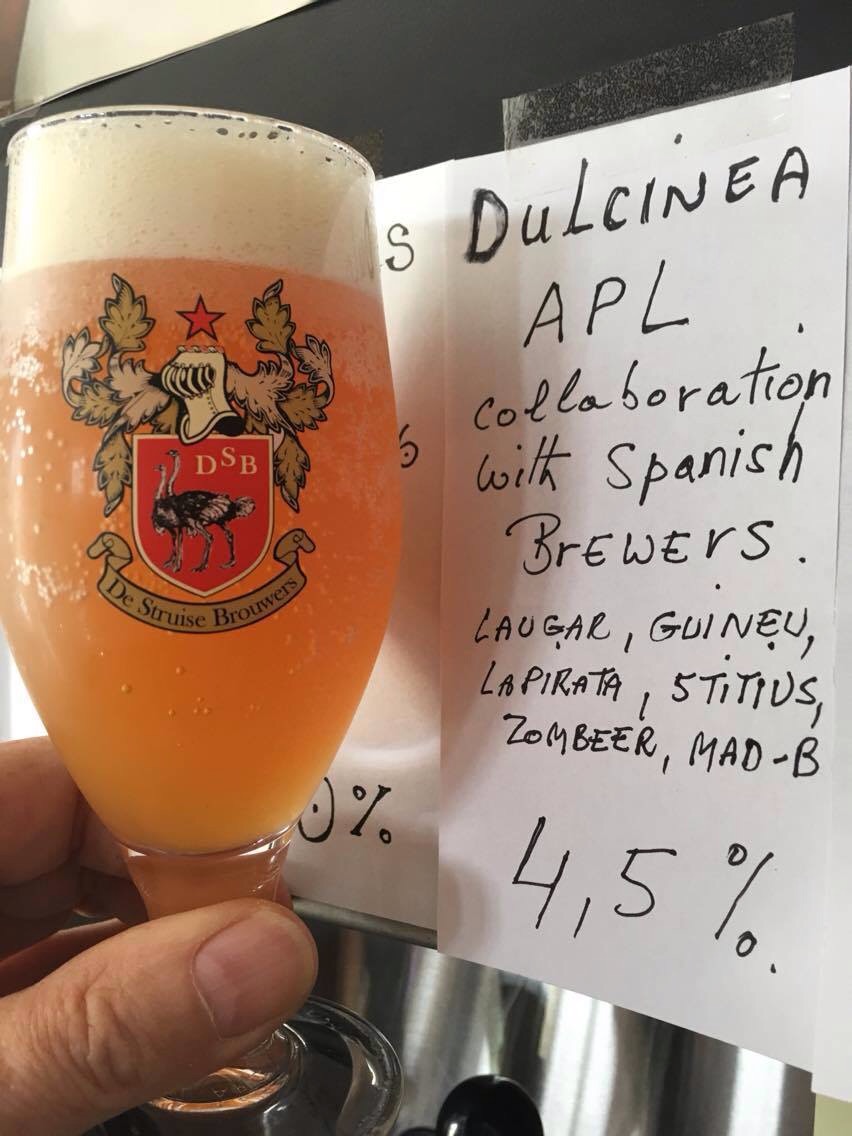 DSB
De Struise Brouwers
S
%
0%.
DULCINEA
APL
collaboration
with Spanish
BrEWErS.
LAUGAR, GUINEU,
LAPIRATA, 5TITIUS,
ZOMBEER, MAD-B
4,5%.